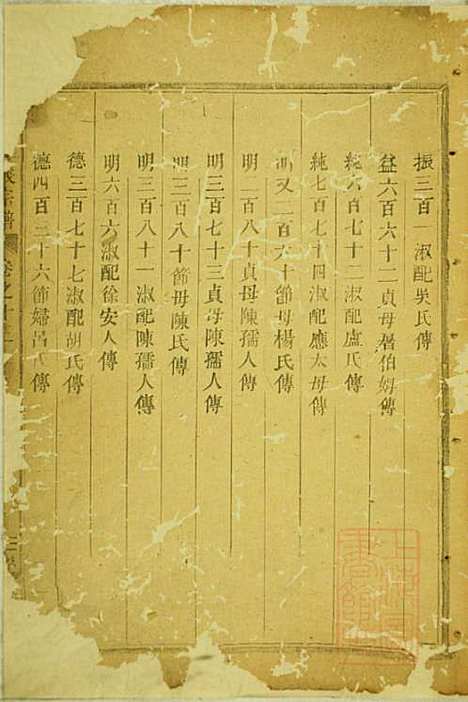 振三百一淑配吳氏傳
益六百六十二貞母屠伯姆傳
純六百七十二淑配盧氏傳
純七百七十四淑配應太母傳
明又二百六十節母楊氏傳
明二百八十貞母陳孺人傳
明三百七十三貞母陳孺人傳
明三百八十節母陳氏傳
明三百八十一淑配陳孺人傳
明六百六淑配徐安人傳
德三百七十七淑配胡氏傳
德四百二十六節婦呂氏傳
宗譜
卷之十